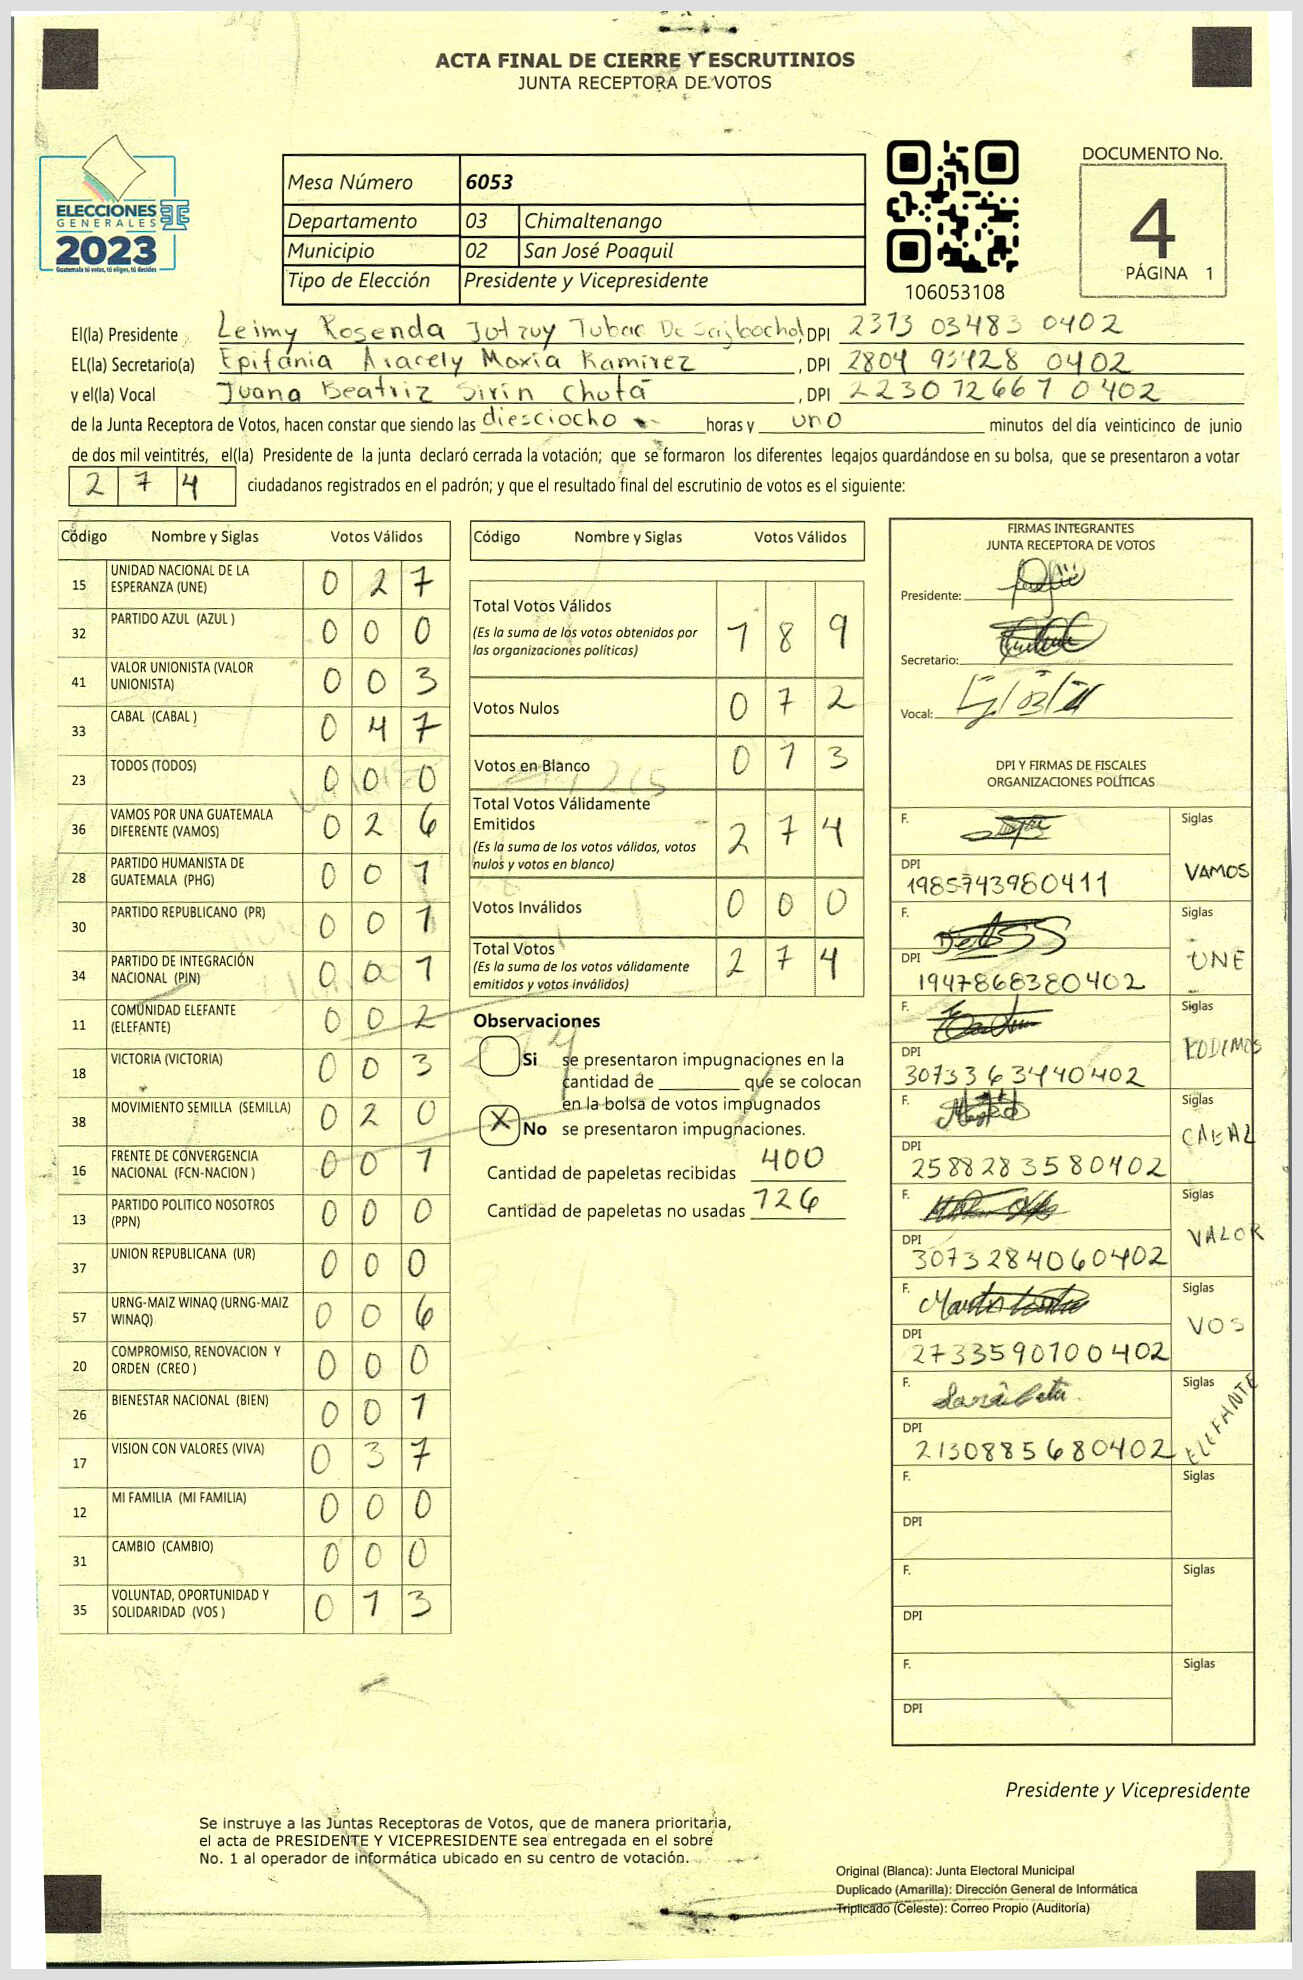 ACTA FINAL DE CIERRE Y ESCRUTINIOS
JUNTA RECEPTORA DE VOTOS
ELECCIONES
GENERALES
2023
Guatemala tú votas, tú eliges, tú decides
Mesa Número 6053
Departamento 03 Chimaltenango
Municipio 02 San José Poaquil
Tipo de Elección Presidente y Vicepresidente
106053108
DOCUMENTO No.
4
PÁGINA 1
El(la) Presidente Leimy Rosenda Jutzuy Tubac De , DPI 2373 03483 0402
EL(la) Secretario(a) Epifania Aracely Moxia Ramirez , DPI 2804 93428 0402
y el(la) Vocal Juana Beatriz Sirin Chutá , DPI 2230 12667 0402
de la Junta Receptora de Votos, hacen constar que siendo las diesciocho horas y uno minutos del día veinticinco de junio
de dos mil veintitrés, el(la) Presidente de la junta declaró cerrada la votación; que se formaron los diferentes legajos guardándose en su bolsa, que se presentaron a votar
274 ciudadanos registrados en el padrón; y que el resultado final del escrutinio de votos es el siguiente:
Código Nombre y Siglas Votos Válidos
15 UNIDAD NACIONAL DE LA ESPERANZA (UNE) 027
32 PARTIDO AZUL (AZUL ) 000
41 VALOR UNIONISTA (VALOR UNIONISTA) 003
33 CABAL (CABAL ) 047
23 TODOS (TODOS) 000
36 VAMOS POR UNA GUATEMALA DIFERENTE (VAMOS) 026
28 PARTIDO HUMANISTA DE GUATEMALA (PHG) 001
30 PARTIDO REPUBLICANO (PR) 001
34 PARTIDO DE INTEGRACIÓN NACIONAL (PIN) 001
11 COMUNIDAD ELEFANTE (ELEFANTE) 002
18 VICTORIA (VICTORIA) 003
38 MOVIMIENTO SEMILLA (SEMILLA) 020
16 FRENTE DE CONVERGENCIA NACIONAL (FCN-NACION ) 001
13 PARTIDO POLITICO NOSOTROS (PPN) 000
37 UNION REPUBLICANA (UR) 000
57 URNG-MAIZ WINAQ (URNG-MAIZ WINAQ) 006
20 COMPROMISO, RENOVACION Y ORDEN (CREO ) 000
26 BIENESTAR NACIONAL (BIEN) 001
17 VISION CON VALORES (VIVA) 037
12 MI FAMILIA (MI FAMILIA) 000
31 CAMBIO (CAMBIO) 000
35 VOLUNTAD, OPORTUNIDAD Y SOLIDARIDAD (VOS ) 013
Código Nombre y Siglas Votos Válidos
Total Votos Válidos 189
(Es la suma de los votos obtenidos por
las organizaciones políticas)
Votos Nulos 072
Votos en Blanco 013
Total Votos Válidamente
Emitidos 274
(Es la suma de los votos válidos, votos
nulos y votos en blanco)
Votos Inválidos 000
Total Votos 274
(Es la suma de los votos válidamente
emitidos y votos inválidos)
Observaciones
Si se presentaron impugnaciones en la
cantidad de ________ que se colocan
en la bolsa de votos impugnados
X No se presentaron impugnaciones.
Cantidad de papeletas recibidas 400
Cantidad de papeletas no usadas 126
FIRMAS INTEGRANTES
JUNTA RECEPTORA DE VOTOS
Presidente:
Secretario:
Vocal:
DPI Y FIRMAS DE FISCALES
ORGANIZACIONES POLÍTICAS
F. Siglas
DPI 1985743980411 VAMOS
F. Siglas
DPI 1947868380402 UNE
F. Siglas
DPI 3073363440402 PODEMOS
F. Siglas
DPI 2588283580402 CABAL
F. Siglas
DPI 3073284060402 VALOR
F. Siglas
DPI 2733590100402 VOS
F. Siglas
DPI 2130885680402 ELEFANTE
F. Siglas
DPI
F. Siglas
DPI
F. Siglas
DPI
Presidente y Vicepresidente
Se instruye a las Juntas Receptoras de Votos, que de manera prioritaria,
el acta de PRESIDENTE Y VICEPRESIDENTE sea entregada en el sobre
No. 1 al operador de informática ubicado en su centro de votación.
Original (Blanca): Junta Electoral Municipal
Duplicado (Amarilla): Dirección General de Informática
Triplicado (Celeste): Correo Propio (Auditoría)